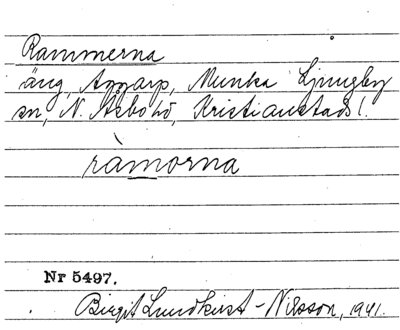 Rammerna
äng, Aggarp, Munka Ljungby
sn, N. Åsbo hd, Kristianstads l.
ràmorna
Nr 5497.
Birgit Lundkvist-Nilsson, 1941.